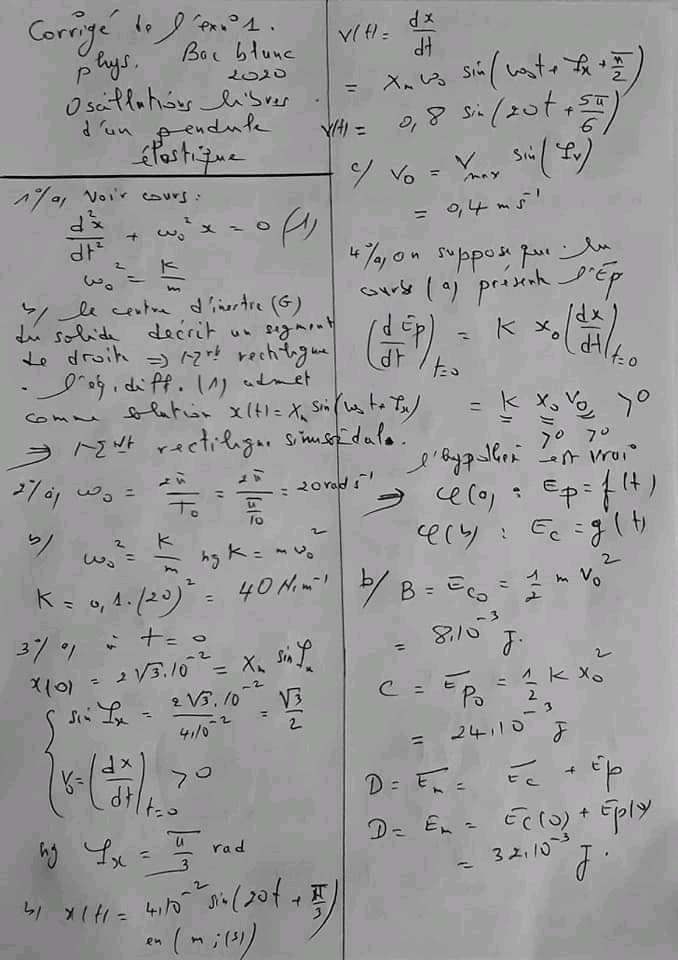 Corrigé de l'ex n° 1.
phys. Bac blanc
2020
Oscillations libres
d'un pendule
élastique
1°/ a, voir cours :
d²x/dt² + ω₀² x = 0 (1)
ω₀² = K/m
b/ le centre d'inertie (G)
du solide decrit un segment
de droite ⇒ rectiligne
. l'éq. diff. (1) admet
comme solution x(t) = Xₘ sin(ω₀t + φₓ)
⇒ rectiligne sinusoïdale.
2°/ a, ω₀ = 2π/T₀ = 2π/(π/10) = 20 rad s⁻¹
b/ ω₀² = K/m K = m ω₀²
K = 0,1.(20)² = 40 N.m⁻¹
3°/ a, à t = 0
x(0) = 2√3.10⁻² = Xₘ sin φₓ
{ sin φₓ = 2√3.10⁻²/4.10⁻² = √3/2
V₀ = (dx/dt)t=0 > 0
φₓ = π/3 rad
b/ x(t) = 4.10⁻² sin(20t + π/3)
en (m ; (s)
V(t) = dx/dt
= Xₘ ω₀ sin(ω₀t + φₓ + π/2)
V(t) = 0,8 sin(20t + 5π/6)
c/ V₀ = Vmax sin(φv)
= 0,4 m s⁻¹
4°/ a, on suppose que la
courbe (a) présente l'Ep
(dEp/dt)t=0 = K x₀ (dx/dt)t=0
= K x₀ V₀ > 0
>0 >0
l'hypothèse est vrai
⇒ φ(a) : Ep = f(t)
φ(b) : Ec = g(t)
b/ B = Ec₀ = 1/2 m V₀²
= 8.10⁻³ J.
C = Ep₀ = 1/2 K x₀²
= 24.10⁻³ J
D = Em = Ec + Ep
D = Em = Ec(0) + Ep(0)
= 32.10⁻³ J.